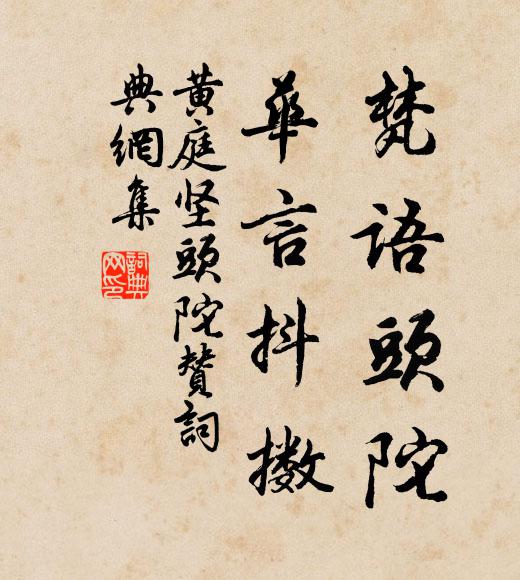 梵語頭陀
華言抖擻
黃庭坚頭陀贊詞
典網集
詞典网印